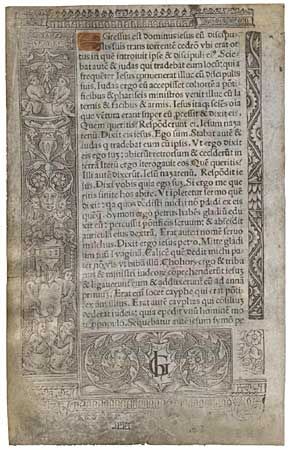 Gressus est dominus iesus cū discipu
lis suis trans torrentē cedrō vbi erat or
tus in quē introiuit ipse & discipuli eiꝰ. Scie
bat autē & iudas qui tradebat eum locū: quia
frequēter iesus cōuenerat illuc cū discipulis
suis. Iudas ergo cū accepisset cohortē a pōti
ficibus & phariseis ministros venit illuc cū la
ternis & facibus & armis. Iesus itaq; sciēs oīa
que vētura erant super eū processit & dixit eis.
Quem queritis? Respōderūt ei. Iesum naza
renū. Dixit eis iesus. Ego sum. Stabat autē & iu
das q̄ tradebat eum cū ipsis. Vt ergo dixit
eis ego sū: abierūt retrorsum & ceciderūt in
terrā Iterū ergo iterrogauit eos. Quē queritis?
Illi autē dixerūt. Iesum nazarenū. Respōdit ie
sus. Dixi vobis quia ego sū. Si ergo me que
ritis sinite hos abire. Vt īpleretur sermo quē
dixit: quia quos dedisti michi nō pdidi ex eis
quēq̄. Symon ergo petrus habēs gladiū edu
xit eū: & percussit pontificis seruum: & abscidit
auriculā eius dextrā. Erat autē nomē seruo
malchus. Dixit ergo iesus petro. Mitte gladi
um tuū ī vaginā. Calicē quē dedit michi pa
ter nō vis vt bibā illū. Cohors ergo & tribu
nus & ministri iudeorū cōprehenderūt iesū:
& ligauerunt eum & adduxerunt eū ad annā
primum. Erat enī socer cayphe qui erat pōti
fex anni illius. Erat autē cayphas qui cōsiliuʒ
dederat iudeis: quia expedit vnū hominē mo
ri pro populo. Sequebatur autē iesum symō pe